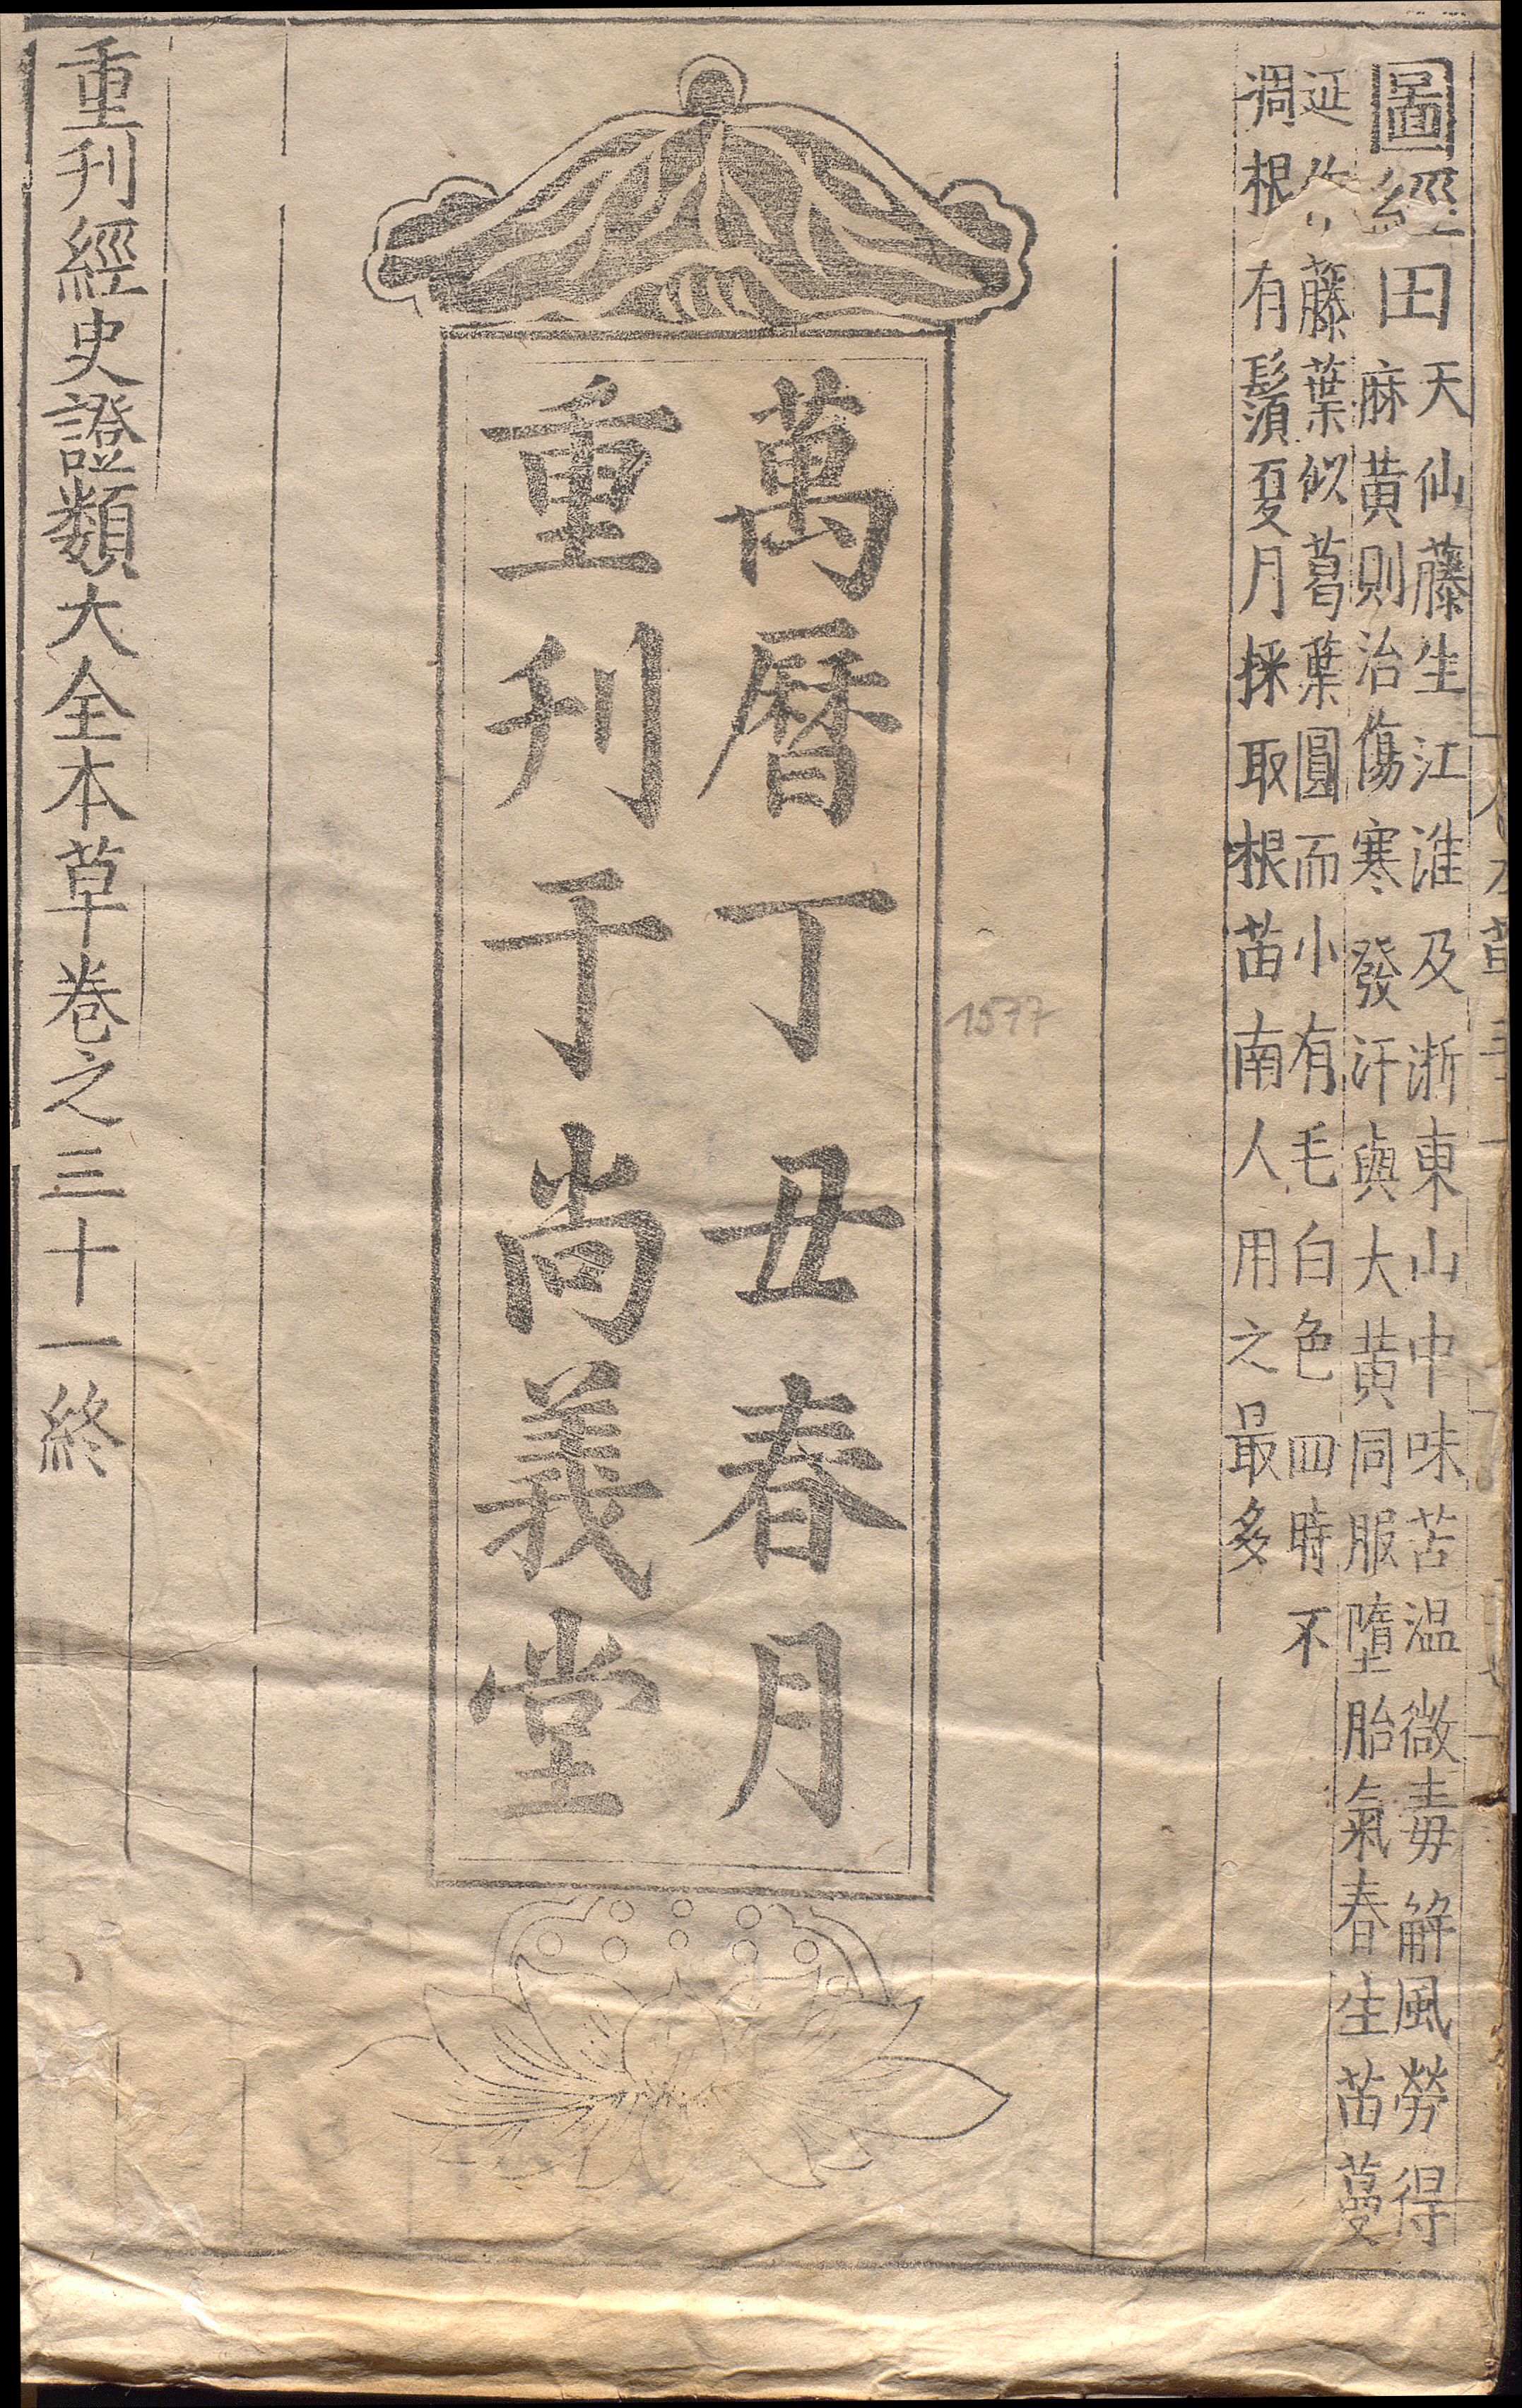 圖經曰
天仙藤生江淮及浙東山中味苦温微毒解風勞得
麻黄則治傷寒發汗與大黄同服墮胎氣春生苗蔓
延作藤葉似葛葉圓而小有毛白色四時不
凋根有鬚夏月採取根苗南人用之最多
萬曆丁丑春月
重刋于尚義堂
1577
重刋經史證類大全本草卷之三十一終